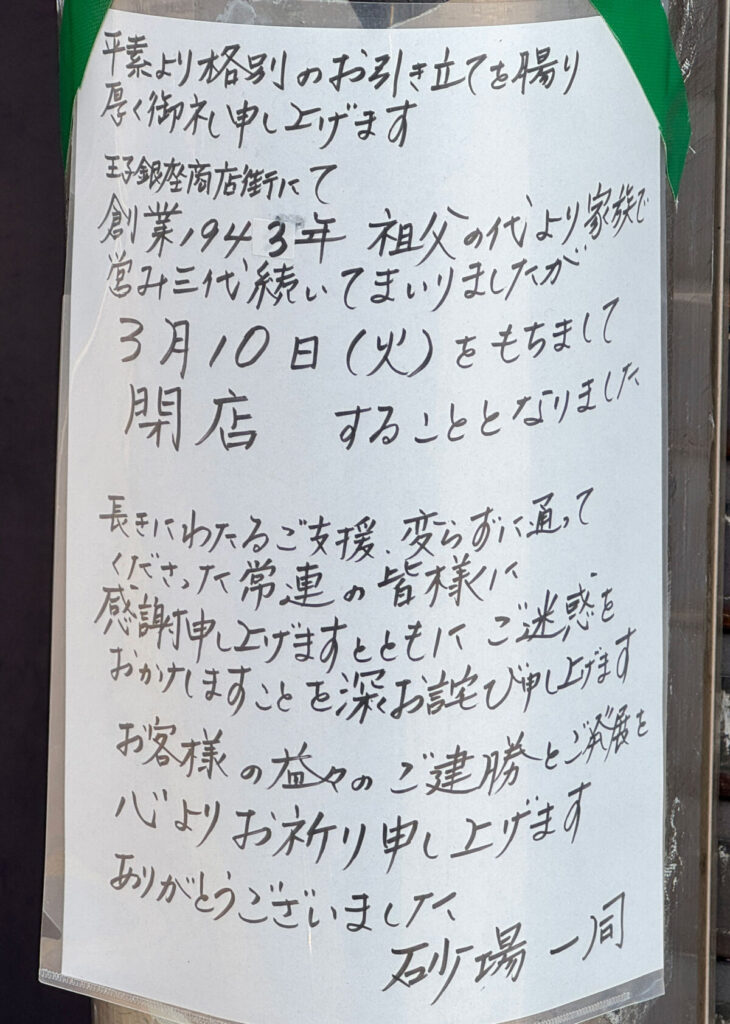 平素より格別のお引き立てを賜り
厚く御礼申し上げます
王子銀座商店街にて
創業1943年 祖父の代より家族で
営み三代続いてまいりましたが
3月10日(火)をもちまして
閉店 することとなりました
長きにわたるご支援、変らずに通って
くださった常連の皆様に
感謝申し上げますとともに ご迷惑を
おかけしますことを深くお詫び申し上げます
お客様の益々のご建勝とご発展を
心よりお祈り申し上げます
ありがとうございました
砂場一同